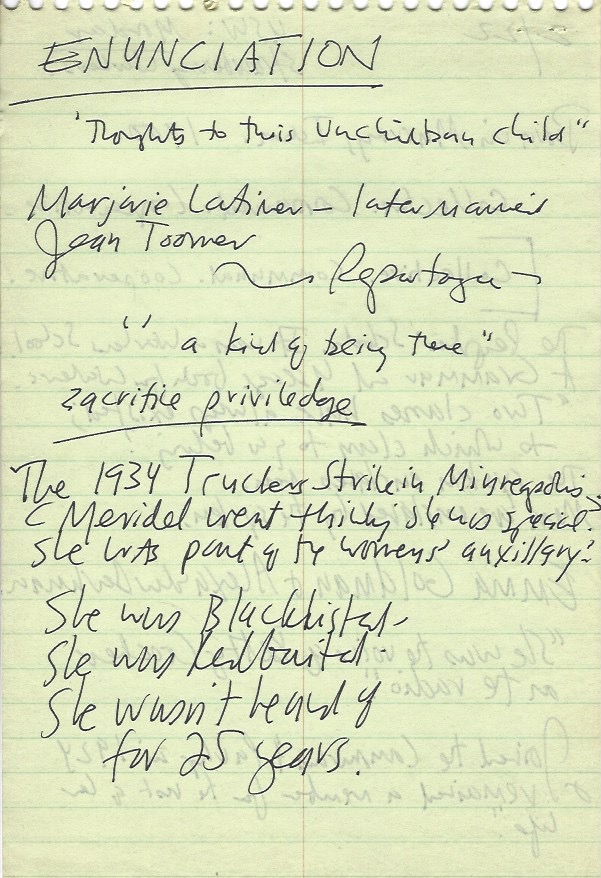 ENUNCIATION
"Thoughts to this child"
Marjorie Latimer – later married
Jean Toomer
Reportage –
"a kind of being there"
sacrifice priviledge
The 1934 Truckers Strike in Minneapolis.
(Meridel went thinking she was special.
She was part of the womens' auxillary?
She was Blacklisted -
She was Redbaited -
She wasn't heard of
for 25 years.